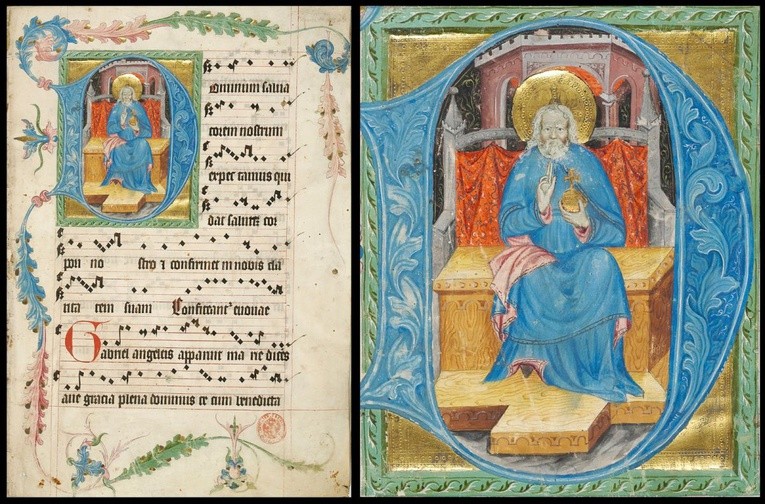 Dominum salua
torem nostrum
expec tamus qui
dat salutē cor
pori no stro ⁊ confirmet in nobis cla
rita tem suam Confitant' euouae
Gabriel angelus apparuit ma rie dicēs
aue gracia plena dominus te cum benedicta